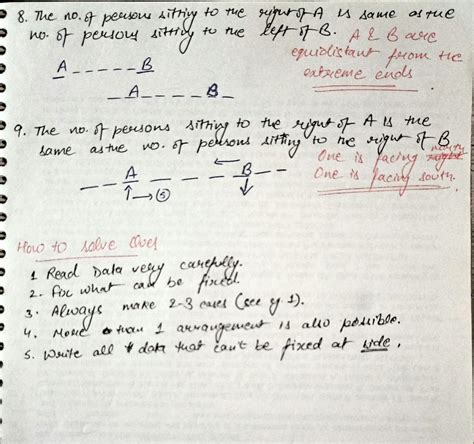 8. The no. of persons sitting to the right of A is same as the
no. of persons sitting to the left of B. A & B are
equidistant from the
extreme ends.
A _ _ _ _ _ B
_ A _ _ _ _ B _
9. The no. of persons sitting to the right of A is the
same as the no. of persons sitting to the right of B
One is facing north
One is facing south.
_ _ A _ _ _ _ B _ _
⑤
How to solve Ques
1. Read Data very carefully.
2. Fix what can be fixed.
3. Always make 2-3 cases (see eg 1).
4. More than 1 arrangement is also possible.
5. Write all data that can't be fixed at side.